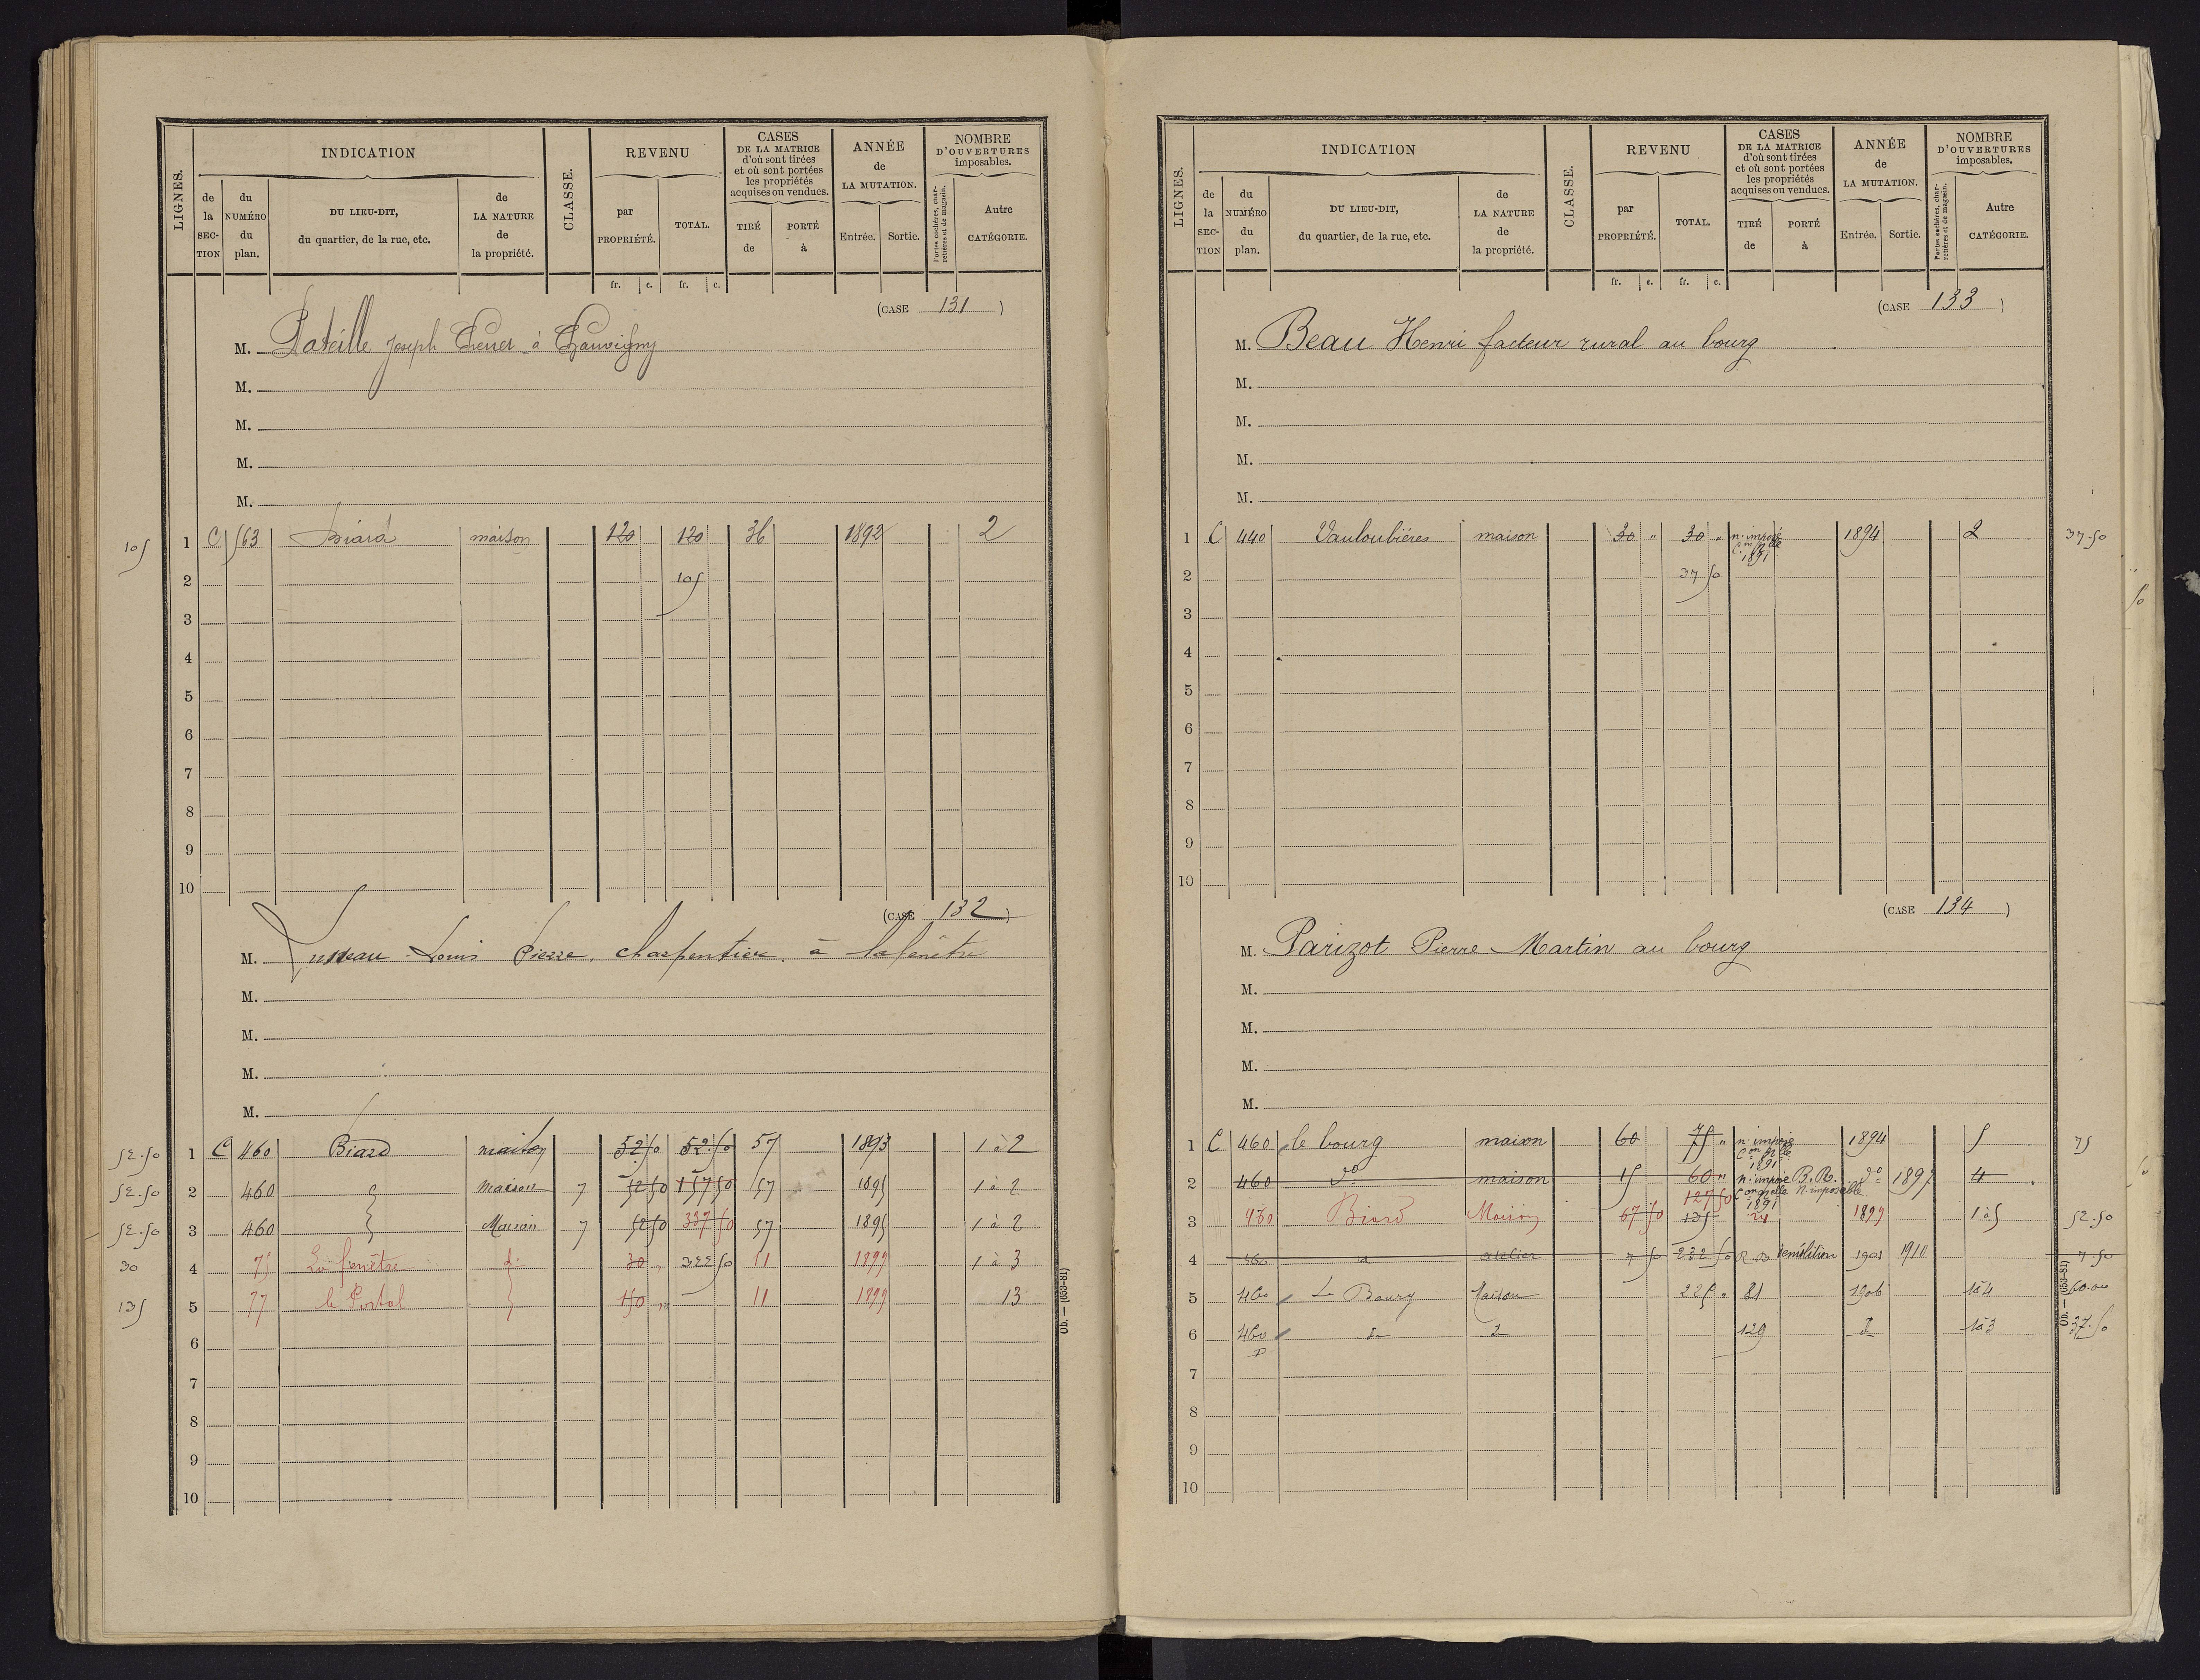 LIGNES. INDICATION CLASSE. REVENU CASES DE LA MATRICE d'où sont tirées et où sont portées les propriétés acquises ou vendues. ANNÉE de LA MUTATION. NOMBRE D'OUVERTURES imposables.
de la SECTION du NUMÉRO du plan. DU LIEU-DIT, du quartier, de la rue, etc. de LA NATURE de la propriété. par PROPRIÉTÉ. TOTAL. TIRÉ de PORTÉ à Entrée. Sortie. Portes cochères, charretières et de magasin. Autre CATÉGORIE.
fr. c. fr. c.
(CASE 131)
M. Joseph à Chauvigny
M.
M.
M.
M.
105 1 C 563 Biard maison 120 120 36 1892 2
2 105
3
4
5
6
7
8
9
10
(CASE 132)
M. Louis Pierre, charpentier, à la fenêtre
M.
M.
M.
M.
52.50 1 C 460 Biard maison 52 50 52.50 57 1893 1 à 2
52.50 2 460 Maison 7 52 50 157 50 57 1895 1 à 2
52.50 3 460 Maison 7 52 50 337 50 57 1895 1 à 2
30 4 75 La fenêtre d° 30 " 322 50 11 1899 1 à 3
135 5 77 le Portal 150 " 11 1899 13
6
7
8
9
10
Ob. — (058-81)
LIGNES. INDICATION CLASSE. REVENU CASES DE LA MATRICE d'où sont tirées et où sont portées les propriétés acquises ou vendues. ANNÉE de LA MUTATION. NOMBRE D'OUVERTURES imposables.
de la SECTION du NUMÉRO du plan. DU LIEU-DIT, du quartier, de la rue, etc. de LA NATURE de la propriété. par PROPRIÉTÉ. TOTAL. TIRÉ de PORTÉ à Entrée. Sortie. Portes cochères, charretières et de magasin. Autre CATÉGORIE.
fr. c. fr. c.
(CASE 133)
M. Beau Henri facteur rural au bourg
M.
M.
M.
M.
1 C 440 Vauloubières maison 30 " 30 " n. imposé Con nelle 1891 1894 2 37.50
2 37 50
3
4
5
6
7
8
9
10
(CASE 134)
M. Parizot Pierre Martin au bourg
M.
M.
M.
M.
1 C 460 le bourg maison 60 75 " n. imposé Con nelle 1891 1894 5 75
2 460 d° maison 15 60 " n. imposé Con nelle 1891 B.R. N. imposable d° 1897 4
127 50
3 460 Biard Maison 67 50 135 24 1899 1 à 5 52.50
4 460 d atelier 7 50 232 50 R B démolition 1901 1910 7.50
5 460 Le Bourg Maison 225 " 81 1906 1 à 4 60.00
6 460 p d° d 129 d 1 à 3 37.50
7
8
9
10
Ob. — (058-81)